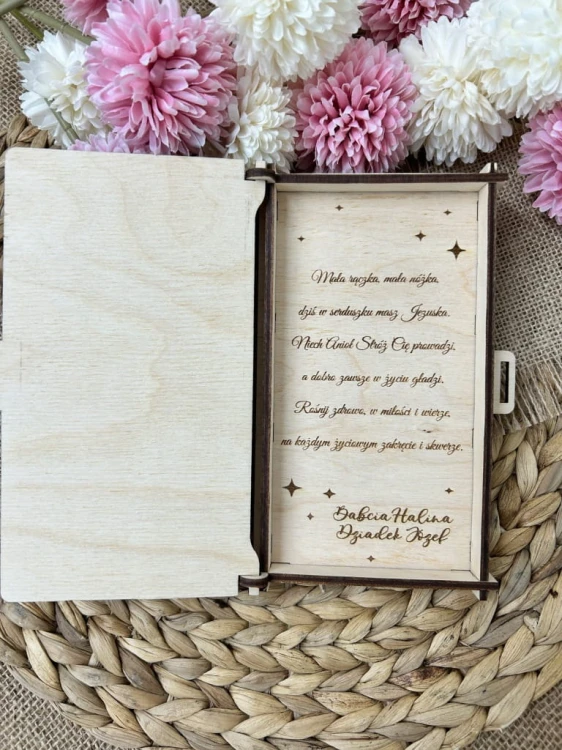 Mała rączka, mała nóżka,
dziś w serduszku masz Jezuska.
Niech Anioł Stróż Cię prowadzi,
a dobro zawsze w życiu gładzi.
Rośnij zdrowo, w miłości i wierze,
na każdym życiowym zakręcie i skwerze.
Babcia Halina
Dziadek Józef